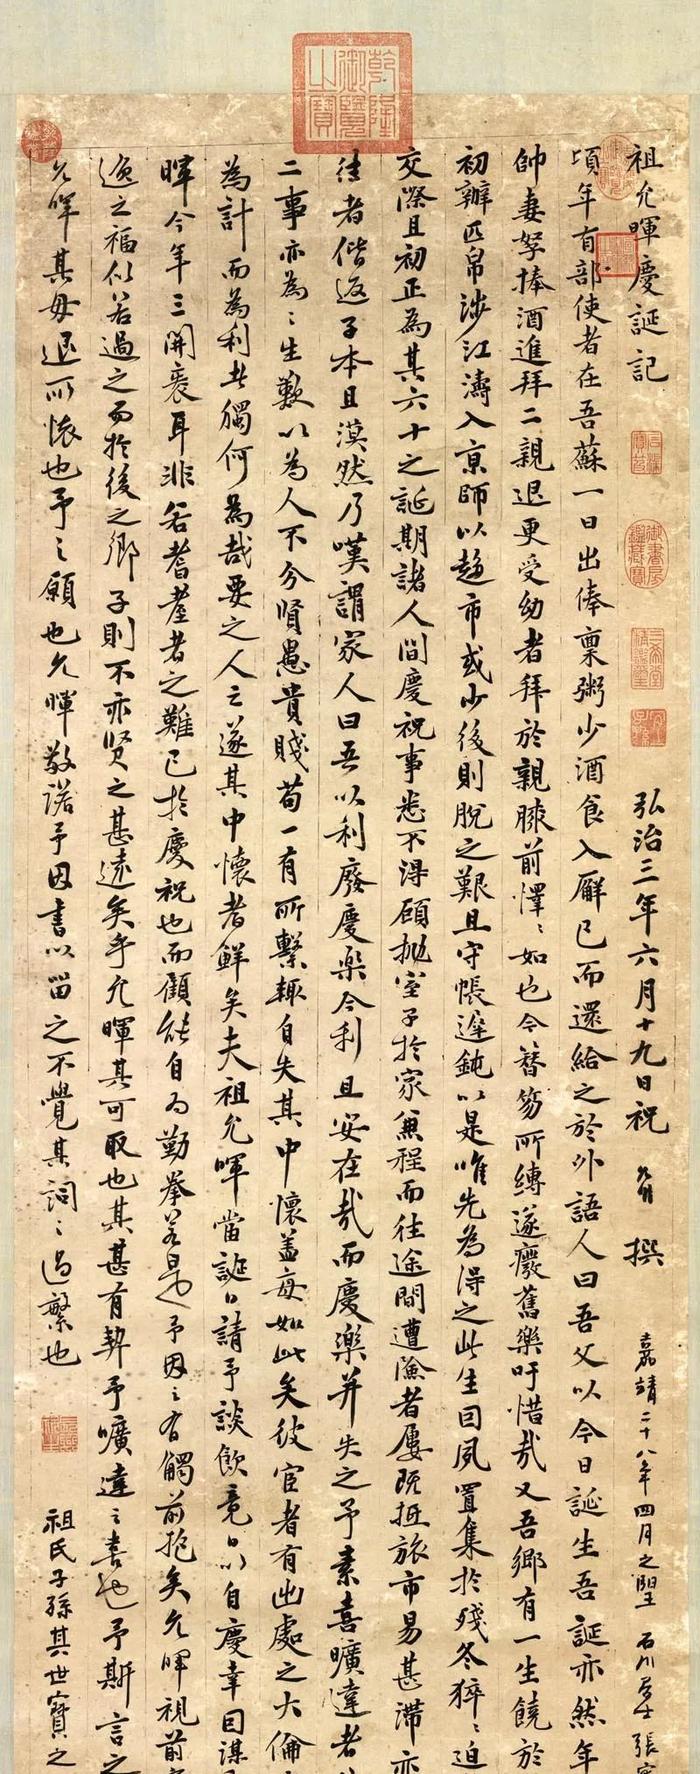 祖允暉慶誕記
弘治三年六月十九日祝允明撰
嘉靖二十八年四月之朢石川居士張寰
頃年有部使者在吾蘇一日出俸稟粥少酒食入廨已而還給之於外語人曰吾父以今日誕生吾誕亦然年
帥妻孥捧酒進拜二親退更受幼者拜於親膝前懌〻如也今簪笏所縛遂癈舊樂吁惜哉又吾鄉有一生饒於
初辦匹帛涉江濤入京師以趍市或少後則脫之艱且守帳遲鈍以是唯先為得之此生回夙置集於殘冬猝〻迫
交際且初正為其六十之誕期諸人間慶祝事悉不得顧拋室子於家兼程而往途間遭險者屢既抵旅市易甚滯亦
往者偕返子本且漠然乃嘆謂家人曰吾以利廢慶樂今利且安在哉而慶樂并失之予素喜曠達者
二事亦為〻生歎以為人不分賢愚貴賤苟一有所繫輒自失其中懷蓋每如此矣彼宦者有出處之大倫
為計而為利者獨何為哉要之人之遂其中懷者鮮矣夫祖允暉當誕日請予談飲竟日以自慶幸因謀
暉今年三開袠耳非若耆耋者之難已於慶祝也而顧能自為勤拳若是予因之有觸前抱矣允暉視前
逸之福似若過之而於後之鄉子則不亦賢之甚遠矣乎允暉其可取也其甚有契予曠達之喜也予斯言之
允暉其毋退所懷也予之願也允暉敬諾予因書以畱之不覺其詞〻過繁也
祖氏子孫其世寶之
乾隆御覽之寶
石渠寶笈
御書房鑑藏寶
三希堂精鑑璽
宜子孫